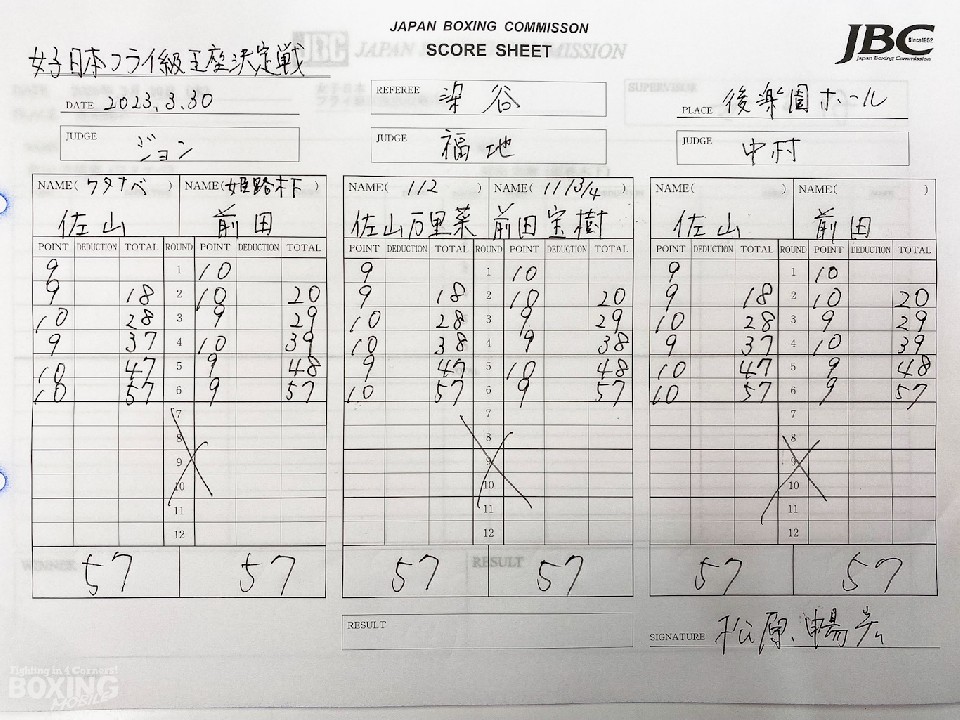 JAPAN BOXING COMMISSON
SCORE SHEET
JBC Since1952
Japan Boxing Commission
女子日本フライ級王座決定戦
DATE 2023.3.30
REFEREE 染谷
PLACE 後楽園ホール
JUDGE ジョン
JUDGE 福地
JUDGE 中村
NAME(ワタナベ) NAME(姫路木下) NAME( 112 ) NAME( 111 3/4 ) NAME( ) NAME( )
佐山 前田 佐山万里菜 前田宝樹 佐山 前田
POINT DEDUCTION TOTAL ROUND POINT DEDUCTION TOTAL POINT DEDUCTION TOTAL ROUND POINT DEDUCTION TOTAL POINT DEDUCTION TOTAL ROUND POINT DEDUCTION TOTAL
9 1 10 9 1 10 9 1 10
9 18 2 10 20 9 18 2 10 20 9 18 2 10 20
10 28 3 9 29 10 28 3 9 29 10 28 3 9 29
9 37 4 10 39 10 38 4 9 38 9 37 4 10 39
10 47 5 9 48 9 47 5 10 48 10 47 5 9 48
10 57 6 9 57 10 57 6 9 57 10 57 6 9 57
7 7 7
8 8 8
9 9 9
10 10 10
11 11 11
12 12 12
57 57 57 57 57 57
RESULT
SIGNATURE 松原
Fighting in 4 Corners!
BOXING
MOBILE